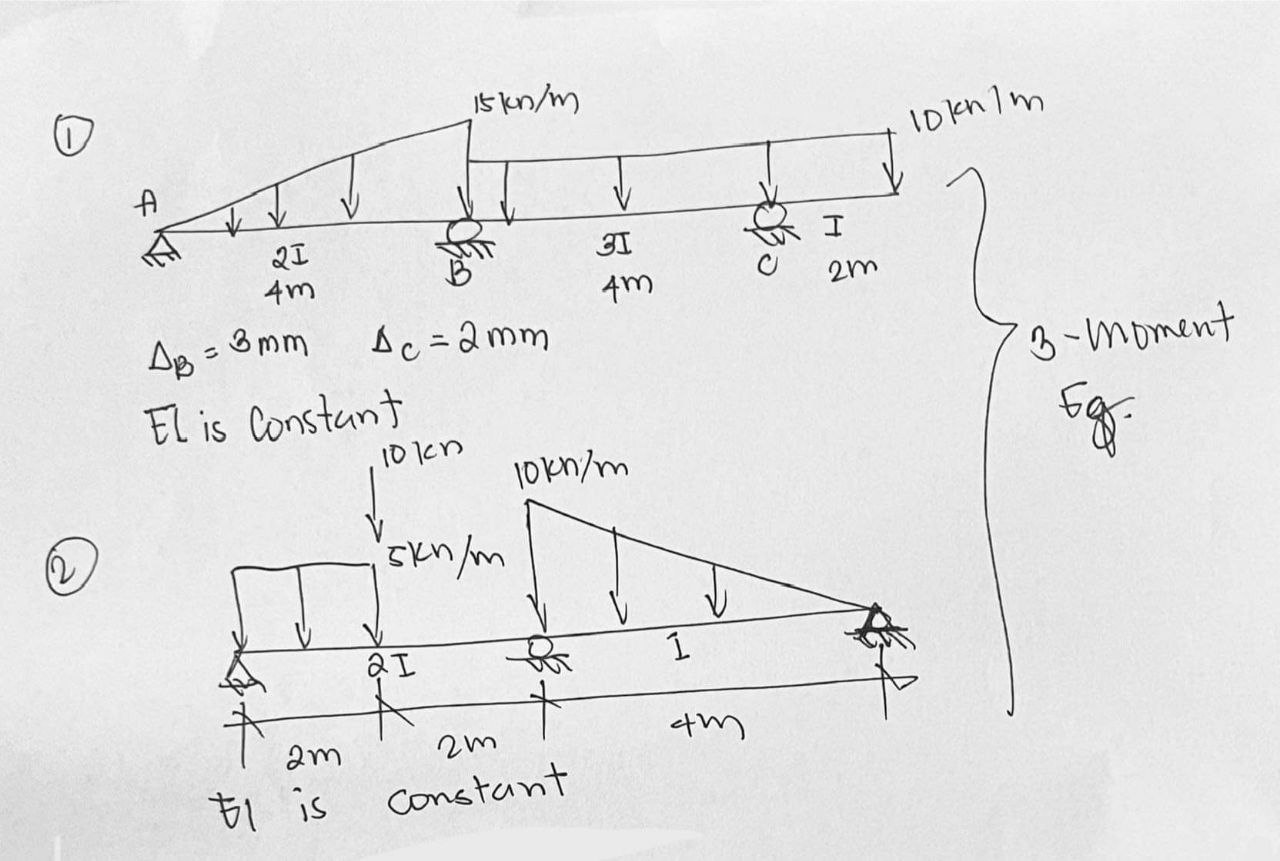 ①
15kn/m
10kn/m
A
2I
4m
B
3I
4m
C
I
2m
ΔB = 3mm ΔC = 2mm
EI is Constant
3-Moment
Eq.
②
10kn
5kn/m
10kn/m
2I
I
2m
2m
4m
EI is constant